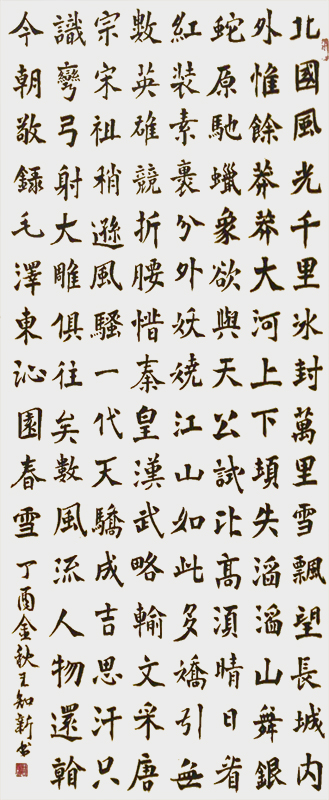 北國風光千里冰封萬里雪飄望長城內
外惟餘莽莽大河上下頃失滔滔山舞銀
蛇原馳蠟象欲與天公試比高須晴日看
紅裝素裹分外妖嬈江山如此多嬌引無
數英雄競折腰惜秦皇漢武略輸文采唐
宗宋祖稍遜風騷一代天驕成吉思汗只
識彎弓射大雕俱往矣數風流人物還看
今朝敬錄毛澤東沁園春雪 丁酉金秋王知新书